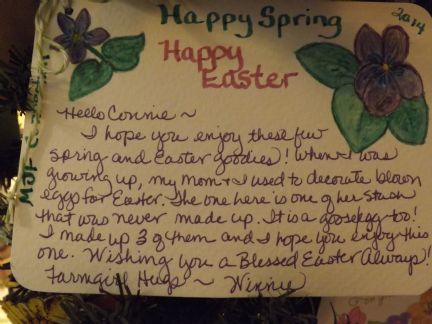 Happy Spring
2014
Happy
Easter
Hello Connie ~
I hope you enjoy these few
Spring and Easter goodies! When I was
growing up, my mom & I used to decorate blown
eggs for Easter. The one here is one of her stash
that was never made up. It is a goose egg too!
I made up 3 of them and I hope you enjoy this
one. Wishing you a Blessed Easter Always!
Farmgirl Hugs ~ Winnie